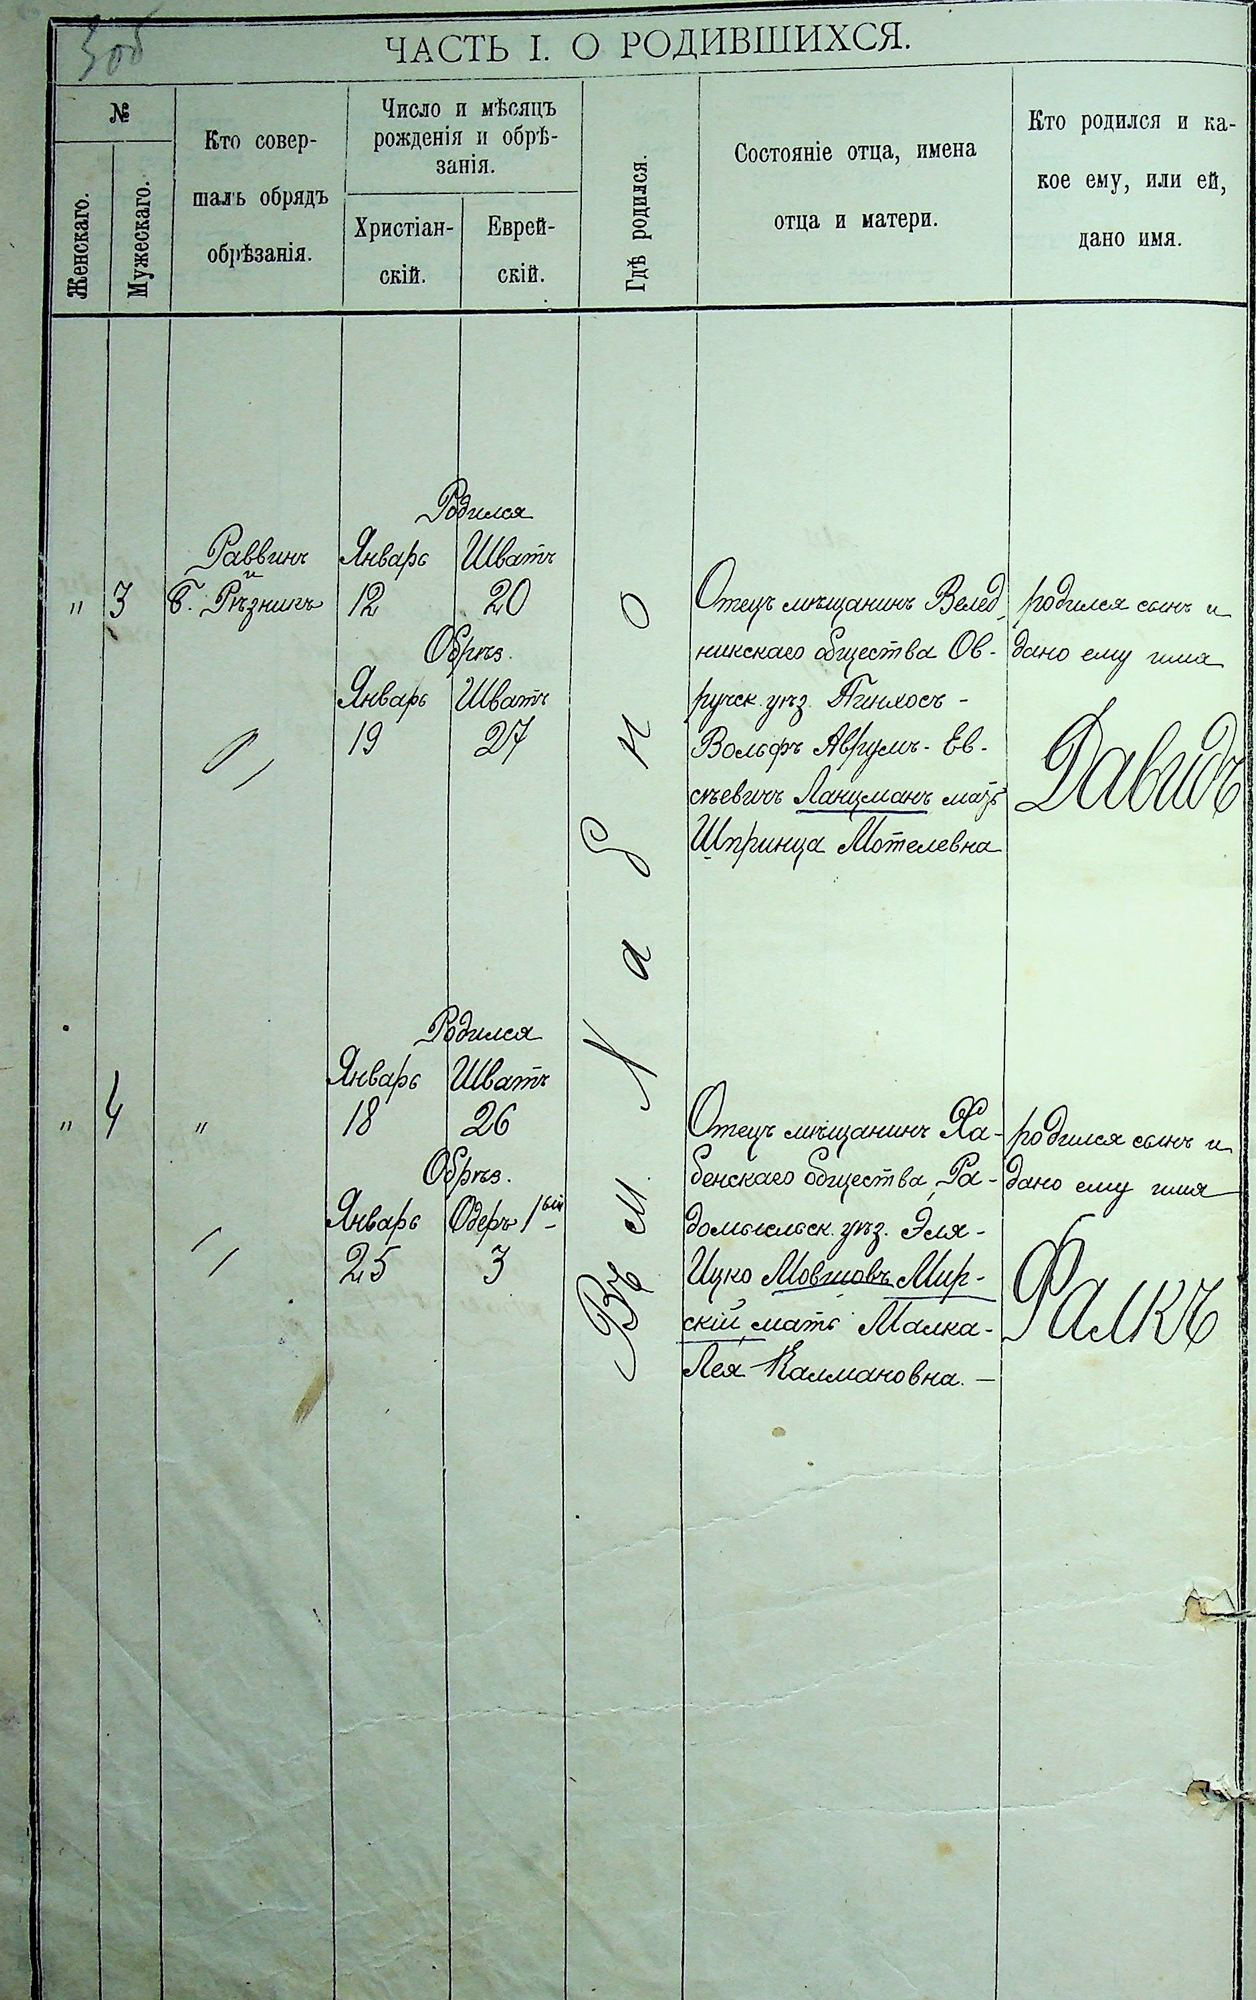 3об
ЧАСТЬ I. О РОДИВШИХСЯ.
№
Женскаго.
Мужескаго.
Кто совер-
шалъ обрядъ
обрѣзанія.
Число и мѣсяцъ
рожденія и обрѣ-
занія.
Христіан-
скій.
Еврей-
скій.
Гдѣ родился.
Состояніе отца, имена
отца и матери.
Кто родился и ка-
кое ему, или ей,
дано имя.
Родился
Раввинъ Январь Шватъ
и
" 3 Б. Рѣзникъ 12 20
Обрѣз.
Январь Шватъ
19 27
Въ м. Хабно
Отецъ мѣщанинъ Велед-
никскаго общества Ов-
ручск. уѣз. Пинхосъ -
Вольфъ Аврумъ-Ев-
сѣевичъ Ланцманъ мать
Шпринца Мотелевна
родился сынъ и
дано ему имя
Давидъ
Родился
Январь Шватъ
" 4 " 18 26
Обрѣз.
Январь Одеръ 1ый
25 3
Отецъ мѣщанинъ Ха-
бенскаго общества, Ра-
домысльск. уѣз. Эля-
Ицко Мовшовъ Мир-
скій мать Малка-
Лея Калмановна. —
родился сынъ и
дано ему имя
Фалкъ